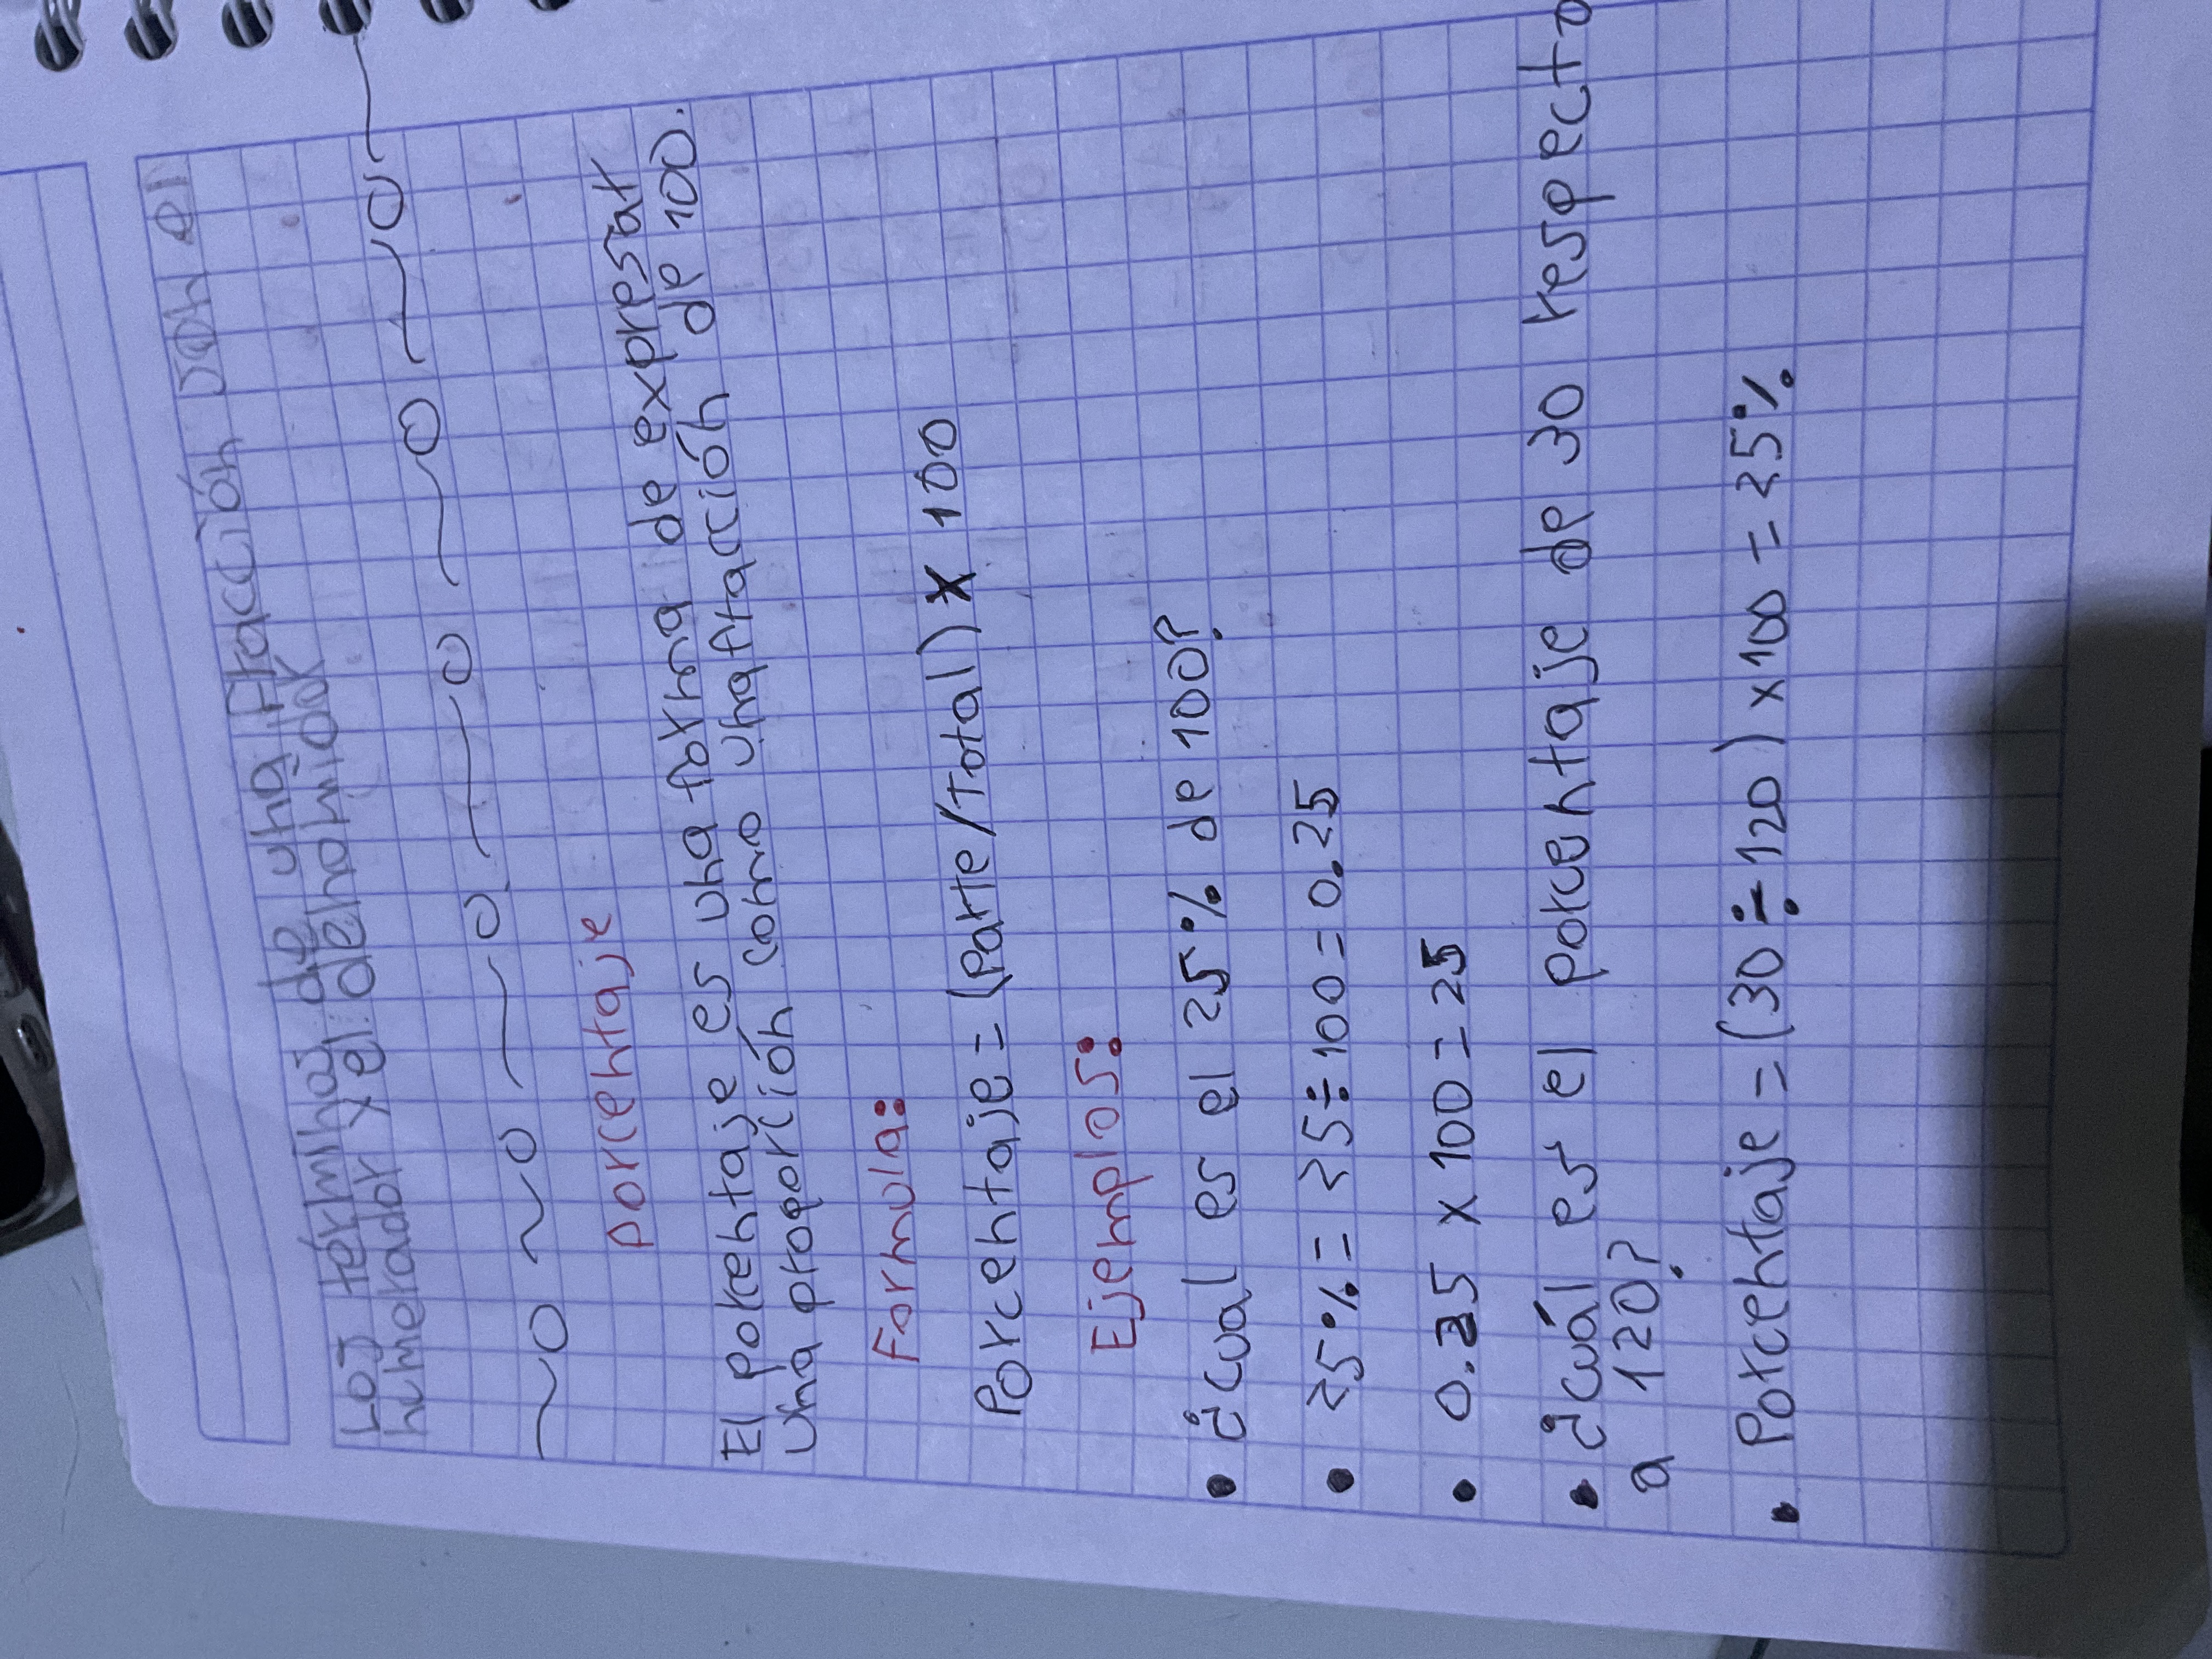 Los términos de una Fracción son el
numerador y el denominador
porcentaje
El porcentaje es una forma de expresar
una proporción como una fracción de 100.
Formula:
Porcentaje = (Parte/Total) x 100
Ejemplos:
• ¿cual es el 25% de 100?
• 25% = 25 ÷ 100 = 0.25
• 0.25 x 100 = 25
• ¿cuál es el porcentaje de 30 respecto
a 120?
• Porcentaje = (30 ÷ 120) x 100 = 25%